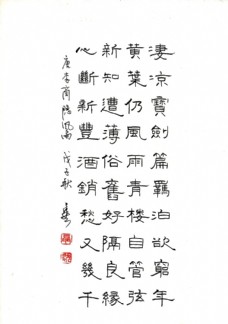 淒涼寶劍篇羈泊欲窮年
黃葉仍風雨青楼自管弦
新知遭薄俗舊好隔良緣
心斷新豐酒銷愁又幾千
唐李商隱風雨 戊子秋